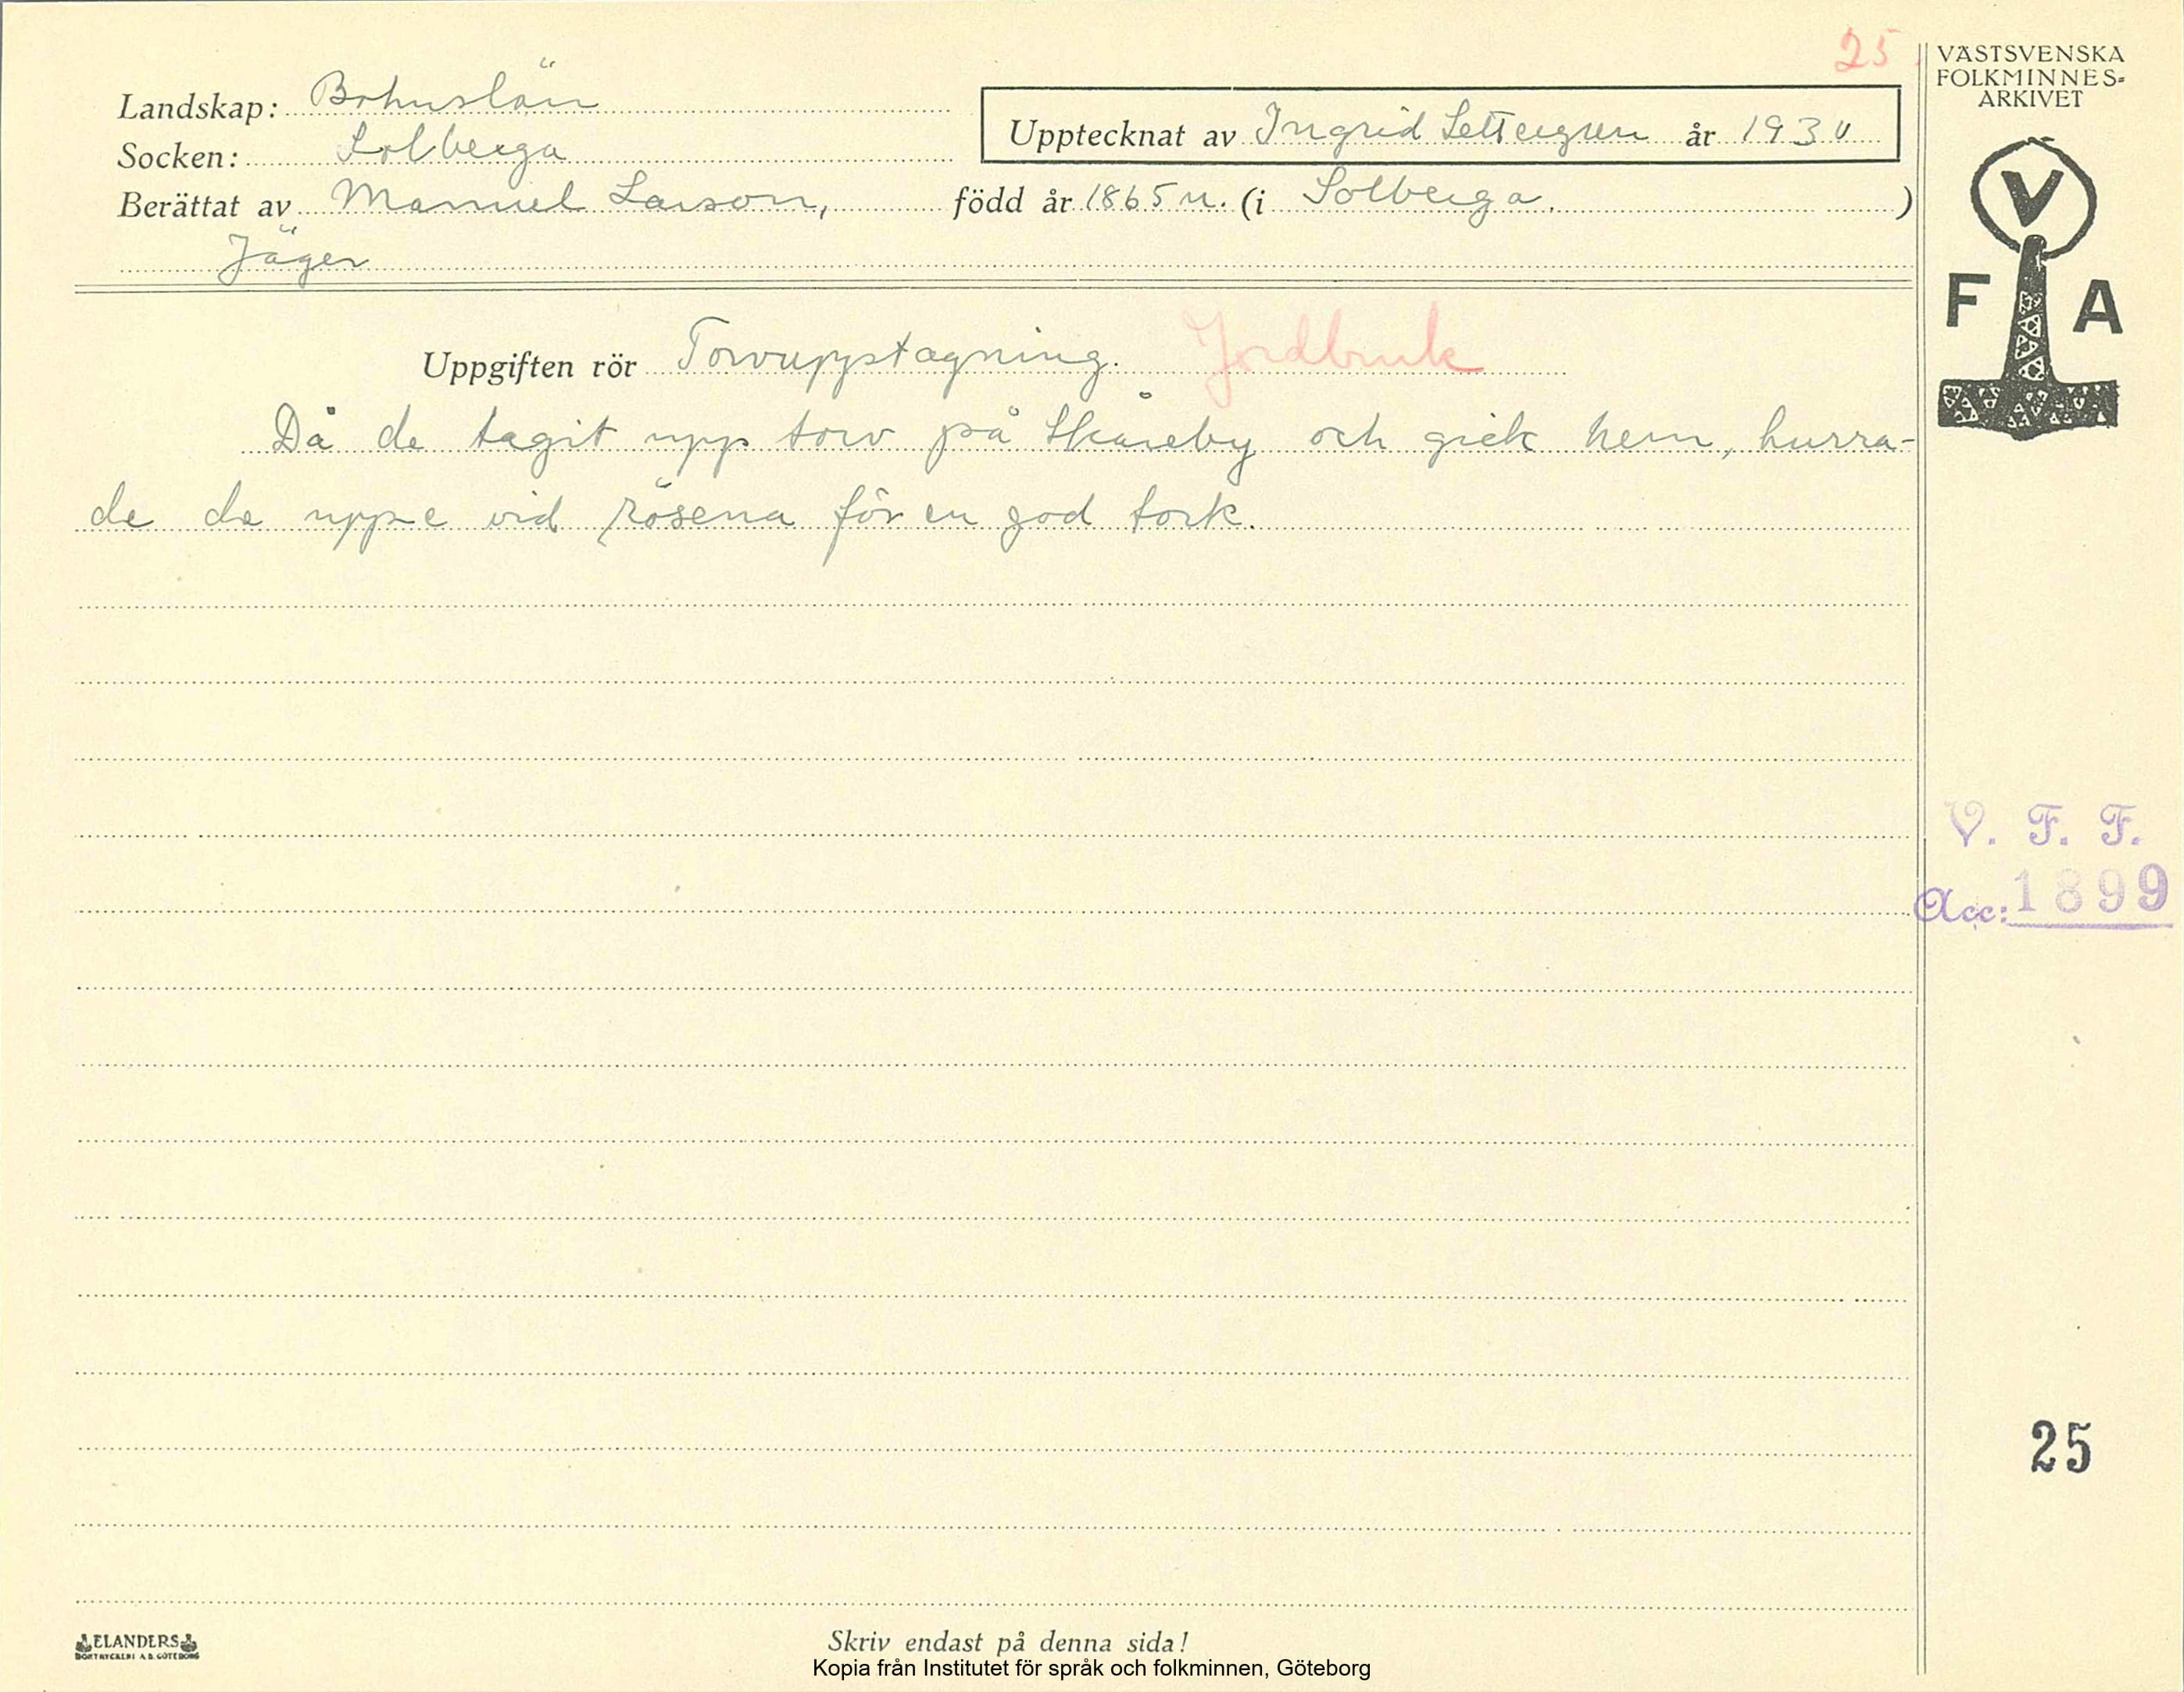 25
VÄSTSVENSKA
FOLKMINNES-
ARKIVET
Landskap: Bohuslän
Socken: Solberga
Upptecknat av Ingrid Settergren år 1930
Berättat av Manuel Larson, född år 1865 (i Solberga. )
Jäger
V
F A
Uppgiften rör Torvupptagning. Jordbruk
Då de tagit upp torv på Skåreby och gick hem, hurra-
de de uppe vid rösena för en god tork.
V. F. F.
Acc: 1899
25
ELANDERS
BOKTRYCKERI A.B. GÖTEBORG
Skriv endast på denna sida!
Kopia från Institutet för språk och folkminnen, Göteborg